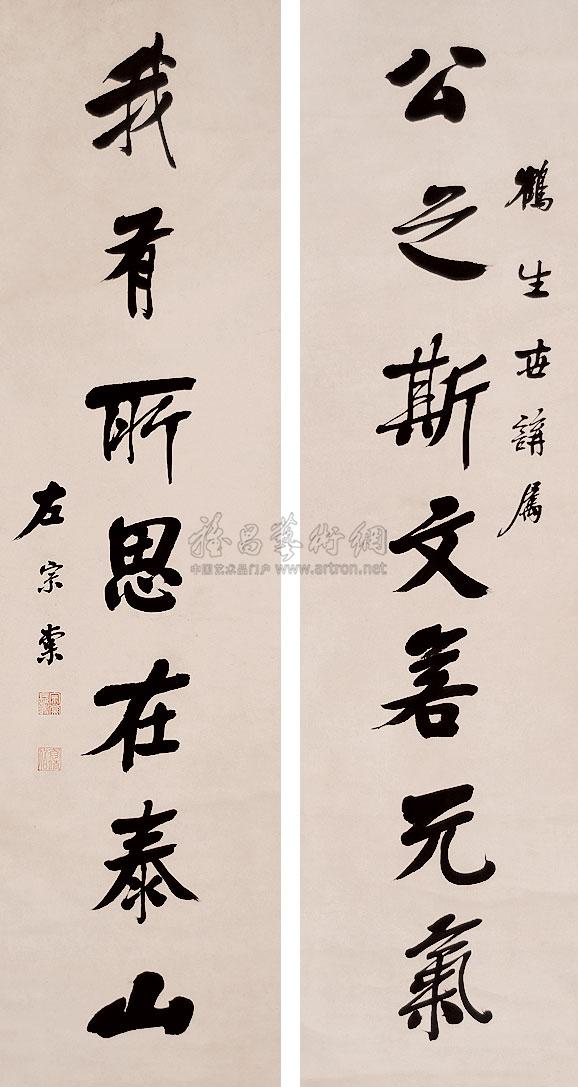 鶴生世講属
公之斯文若元氣
我有所思在泰山
左宗棠
雅昌藝術網
中国艺术品门户 www.artron.net